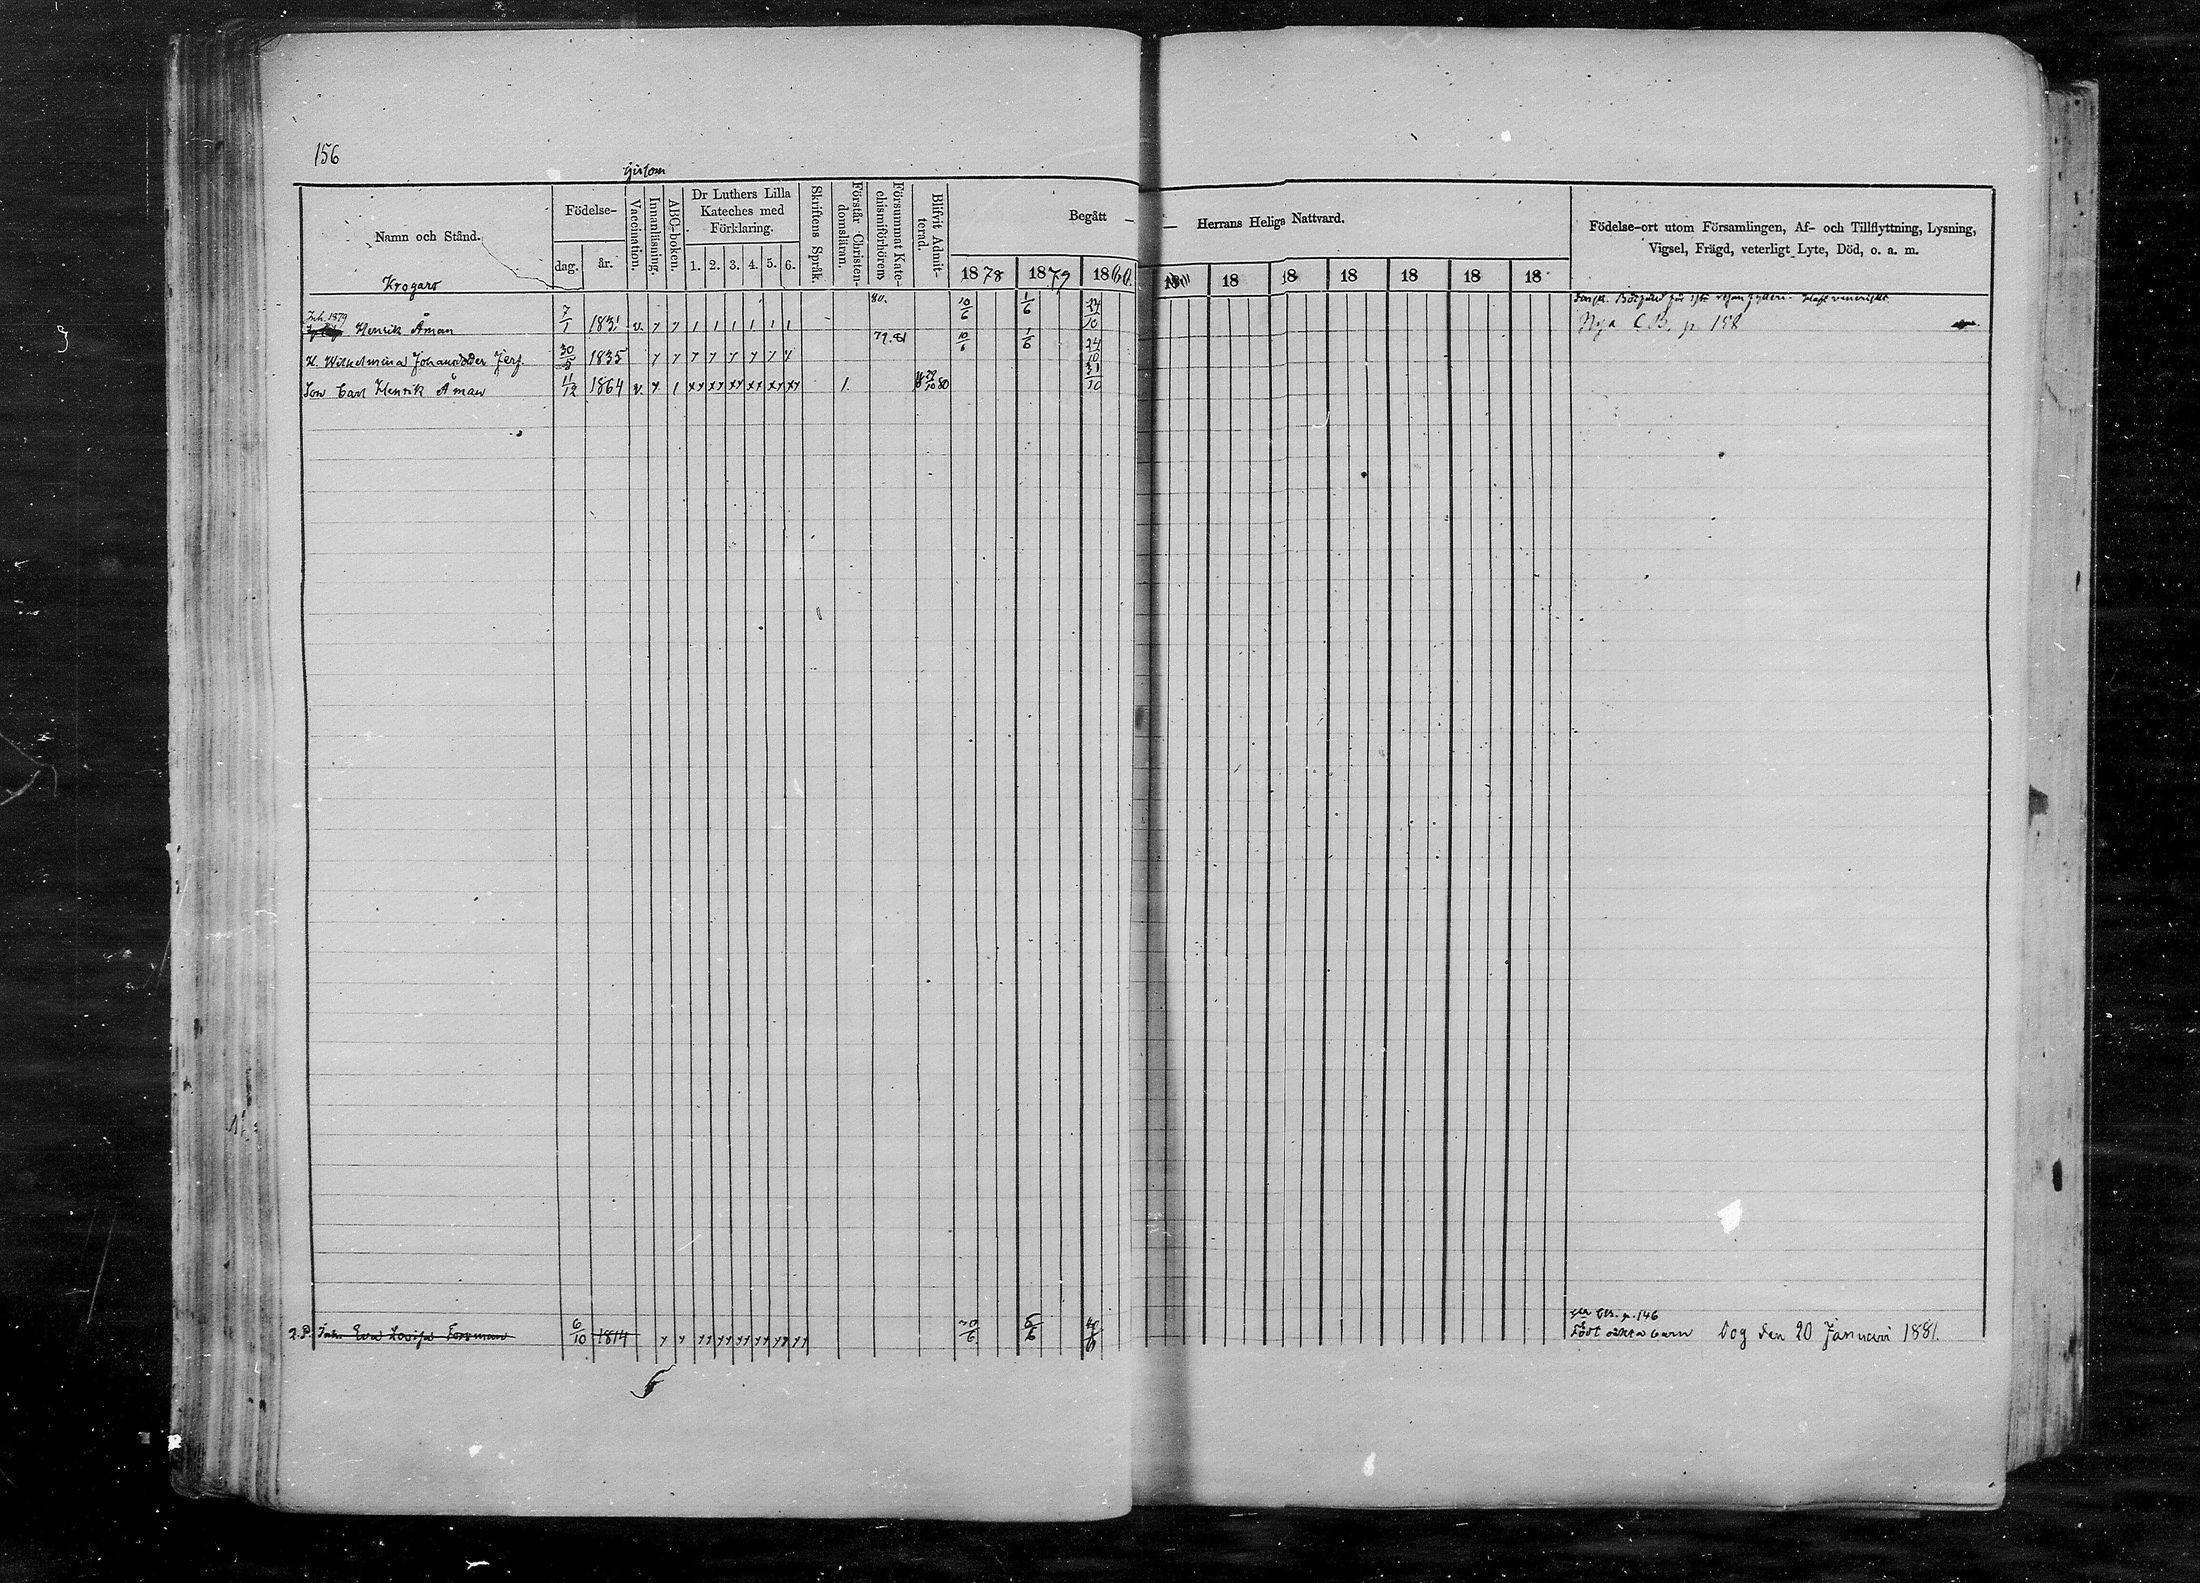 156
Namn och Stånd.
Krogars
Födelse-
dag.
år.
Vaccination.
Innanläsning.
ABC-boken.
Dr Luthers Lilla
Kateches med
Förklaring.
1. 2. 3. 4. 5. 6.
Skriftens Språk.
Förstår Christen-
domsläran.
Försummat Kate-
chismiförhören
Blifvit Admit-
terad.
Begått — — Herrans Heliga Nattvard.
1878 1879 18 18 18 18 18 18 18 18
Födelse-ort utom Församlingen, Af- och Tillflyttning, Lysning,
Vigsel, Frägd, veterligt Lyte, Död, o. a. m.
Inh. 1879 80.
Henrik Åman 7/1 1831 v. y y 1 1 1 1 1 1 10/6 1/6 24/10 Nya C.B. p 158
79. 81
H. Wilhelmina Johansdoder Jerf. 30/5 1835 y y y y y y y y 10/6 1/6 24/10
Son Carl Henrik Åman 11/12 1864 v. y 1 xy xy xy xy xy xy 1. 29/10 80 31/10
p. 146
2. P. Eva Lovisa Forsman 6/10 1814 y y yy yy yy yy yy yy 6/6 Födt oäkta barn Dog den 20 Januari 1881.